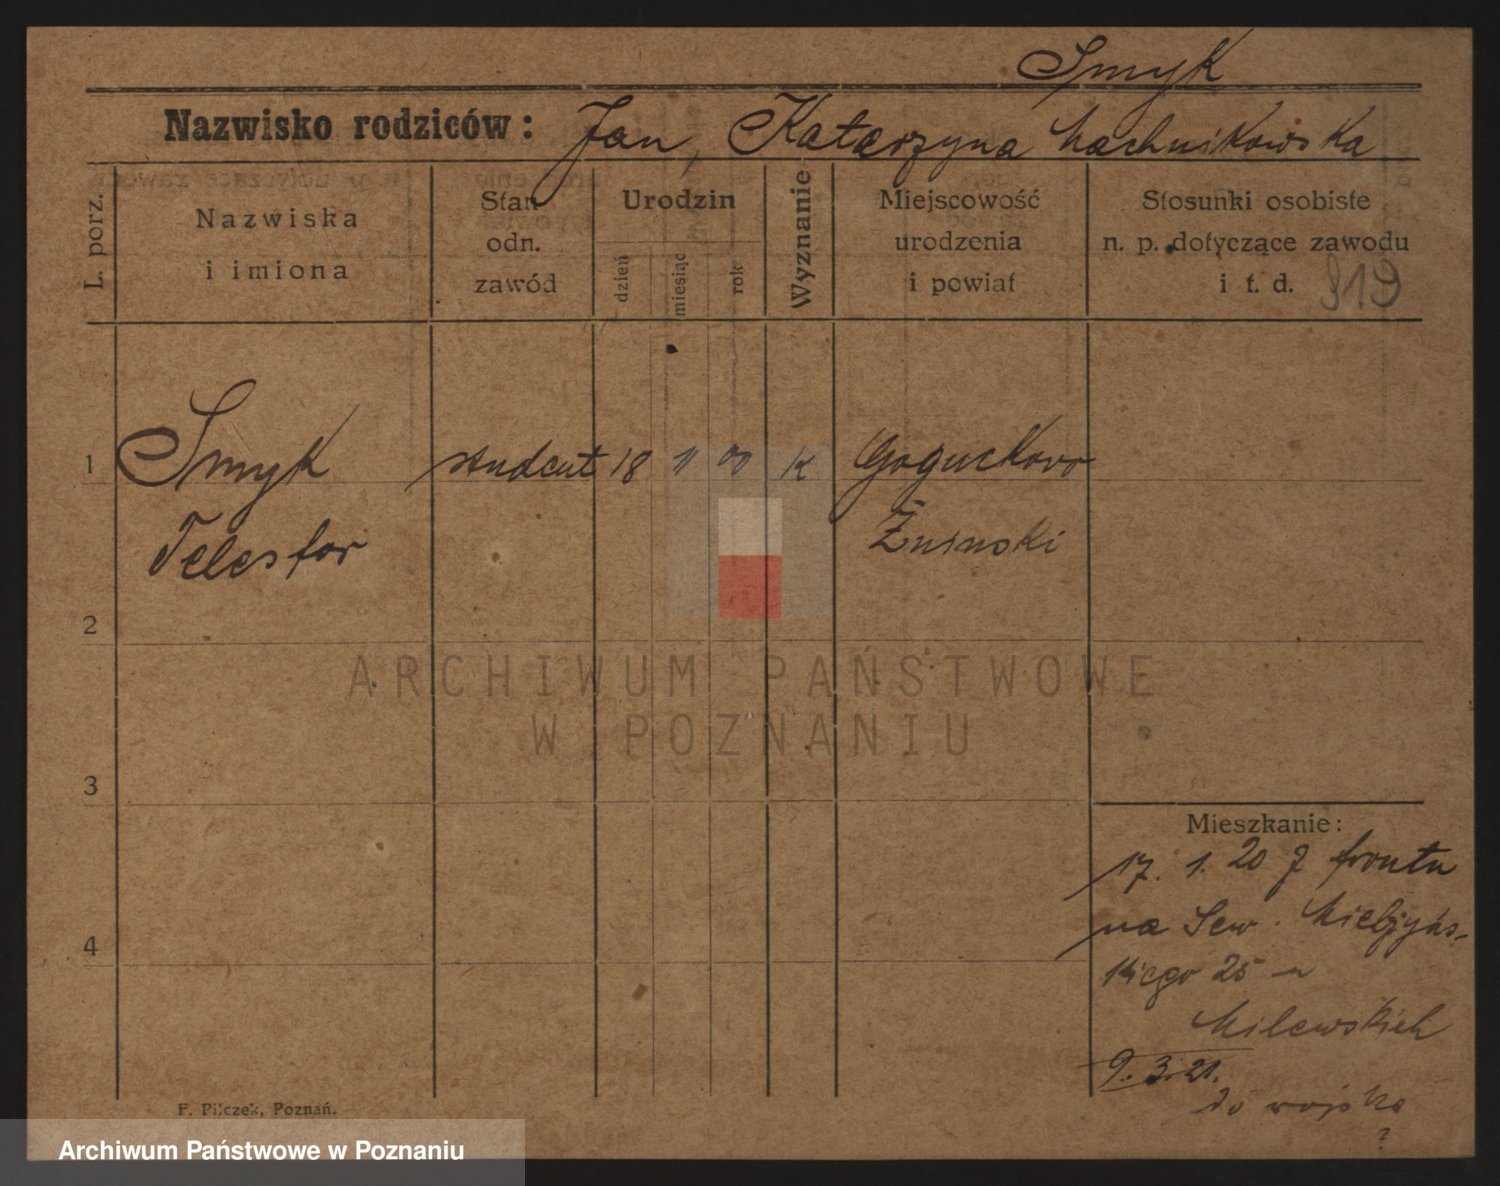 Smyk
Nazwisko rodziców: Jan, Katarzyna Machnikowska
L. porz.
Nazwiska
i imiona
Stan
odn.
zawód
Urodzin
dzień
miesiąc
rok
Wyznanie
Miejscowość
urodzenia
i powiat
Stosunki osobiste
n. p. dotyczące zawodu
i t. d.
919
1
Smyk student 18 11 00 K Goguckowo
Telesfor Żniński
2
ARCHIWUM PAŃSTWOWE
W POZNANIU
3
Mieszkanie:
17. 1. 20 z frontu
na Sew. Mielżyńs-
kiego 25 u
4
Milewskich
9. 3. 21.
do wojska
?
F. Pilczek, Poznań.
Archiwum Państwowe w Poznaniu